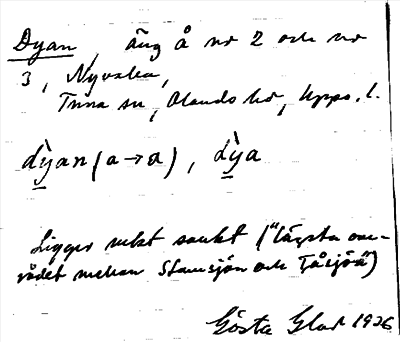 Dyan, äng å nr 2 och nr
3, Nyvalla,
Tuna sn, Olands hd, Upps. l.
dỳan (a→a), dỳa
Ligger mkt sankt ("lägsta om-
rådet mellan Stamsjön och Tåsjön")
Gösta Glad 1926